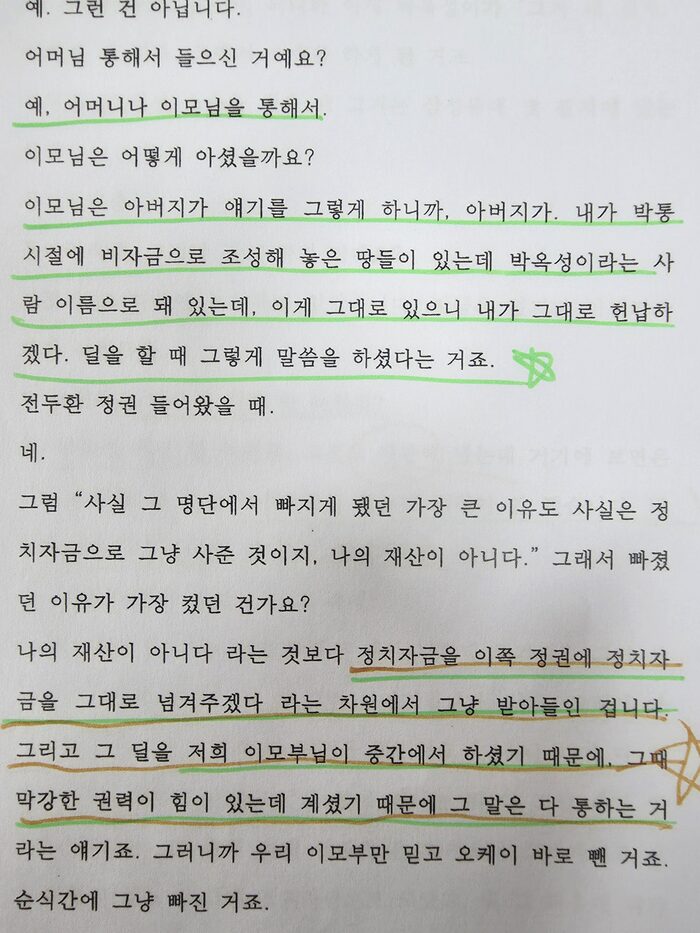 예. 그런 건 아닙니다.
어머님 통해서 들으신 거예요?
예, 어머니나 이모님을 통해서.
이모님은 어떻게 아셨을까요?
이모님은 아버지가 얘기를 그렇게 하니까, 아버지가. 내가 박통
시절에 비자금으로 조성해 놓은 땅들이 있는데 박옥성이라는 사
람 이름으로 돼 있는데, 이게 그대로 있으니 내가 그대로 헌납하
겠다. 딜을 할 때 그렇게 말씀을 하셨다는 거죠.
전두환 정권 들어왔을 때.
네.
그럼 “사실 그 명단에서 빠지게 됐던 가장 큰 이유도 사실은 정
치자금으로 그냥 사준 것이지, 나의 재산이 아니다.” 그래서 빠졌
던 이유가 가장 컸던 건가요?
나의 재산이 아니다 라는 것보다 정치자금을 이쪽 정권에 정치자
금을 그대로 넘겨주겠다 라는 차원에서 그냥 받아들인 겁니다.
그리고 그 딜을 저희 이모부님이 중간에서 하셨기 때문에, 그때
막강한 권력이 힘이 있는데 계셨기 때문에 그 말은 다 통하는 거
라는 얘기죠. 그러니까 우리 이모부만 믿고 오케이 바로 뺀 거죠.
순식간에 그냥 빠진 거죠.